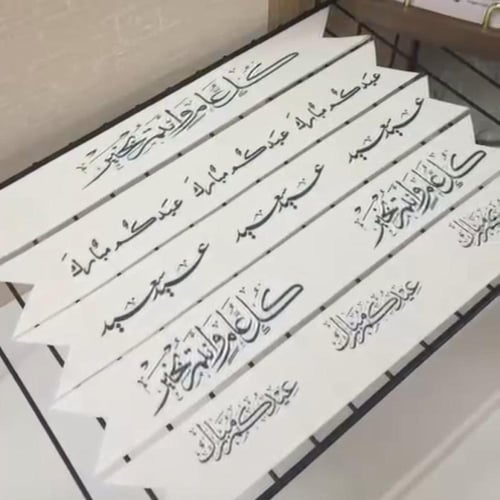 كل عام وانتم بخير
عيدكم مبارك عيدكم مبارك عيدكم مبارك
عيد سعيد عيد سعيد عيد سعيد
كل عام وانتم بخير كل عام وانتم بخير
عيدكم مبارك عيدكم مبارك عيدكم مبارك